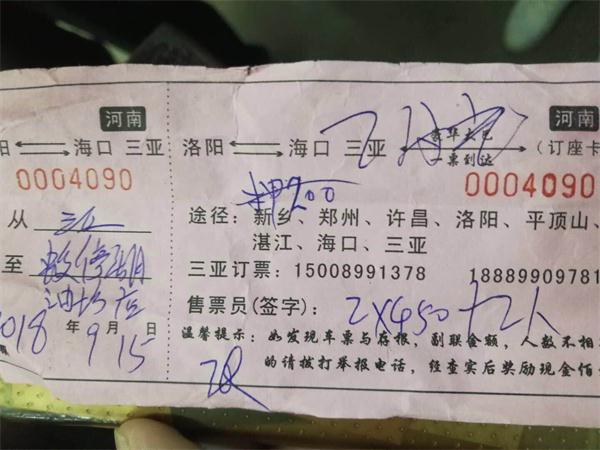 河南
河南
阳 海口 三亚
洛阳 海口 三亚
豪华大巴
一票到达
(订座卡
0004090
0004090
押200
从 三亚
途径:新乡、郑州、许昌、洛阳、平顶山、
湛江、海口、三亚
至
三亚订票:15008991378 18889909781
售票员(签字): 2×450 2人
2018 年 9 月 15 日
温馨提示:如发现车票与存报,副联金额,人数不相
的请拔打举报电话,经查实后奖励现金佰